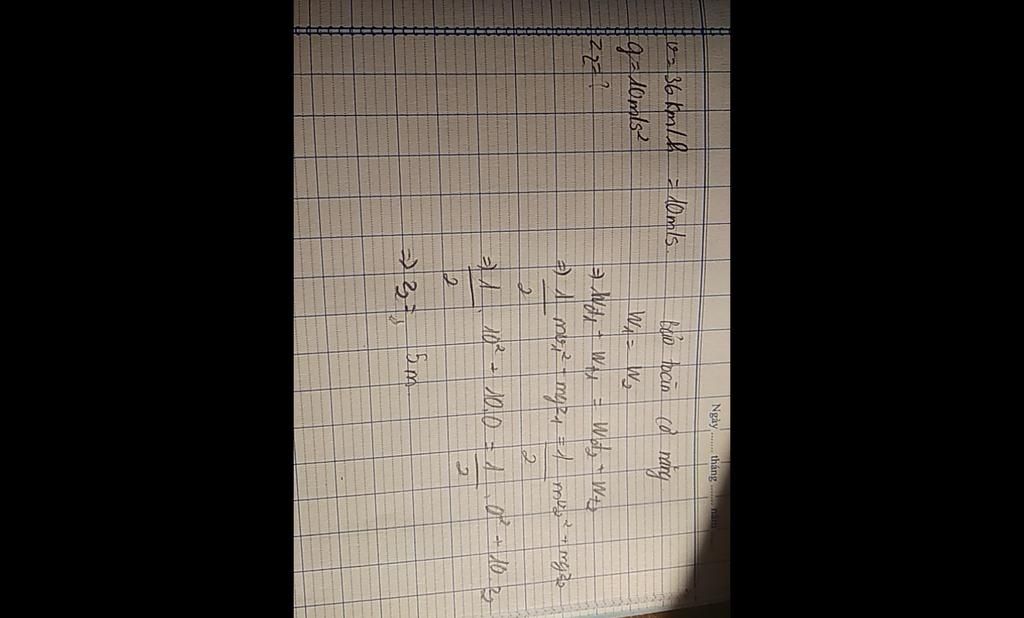 Ngày ...... tháng ...... năm
v = 36 km/h = 10m/s.
g = 10m/s²
z₂ = ?
bảo toàn cơ năng
W₁ = W₂
=> Wđ₁ + Wt₁ = Wđ₂ + Wt₂
=> 1/2 mv₁² + mgz₁ = 1/2 mv₂² + mgz₂
=> 1/2 . 10² + 10.0 = 1/2 . 0² + 10.z₂
=> z₂ = 5m